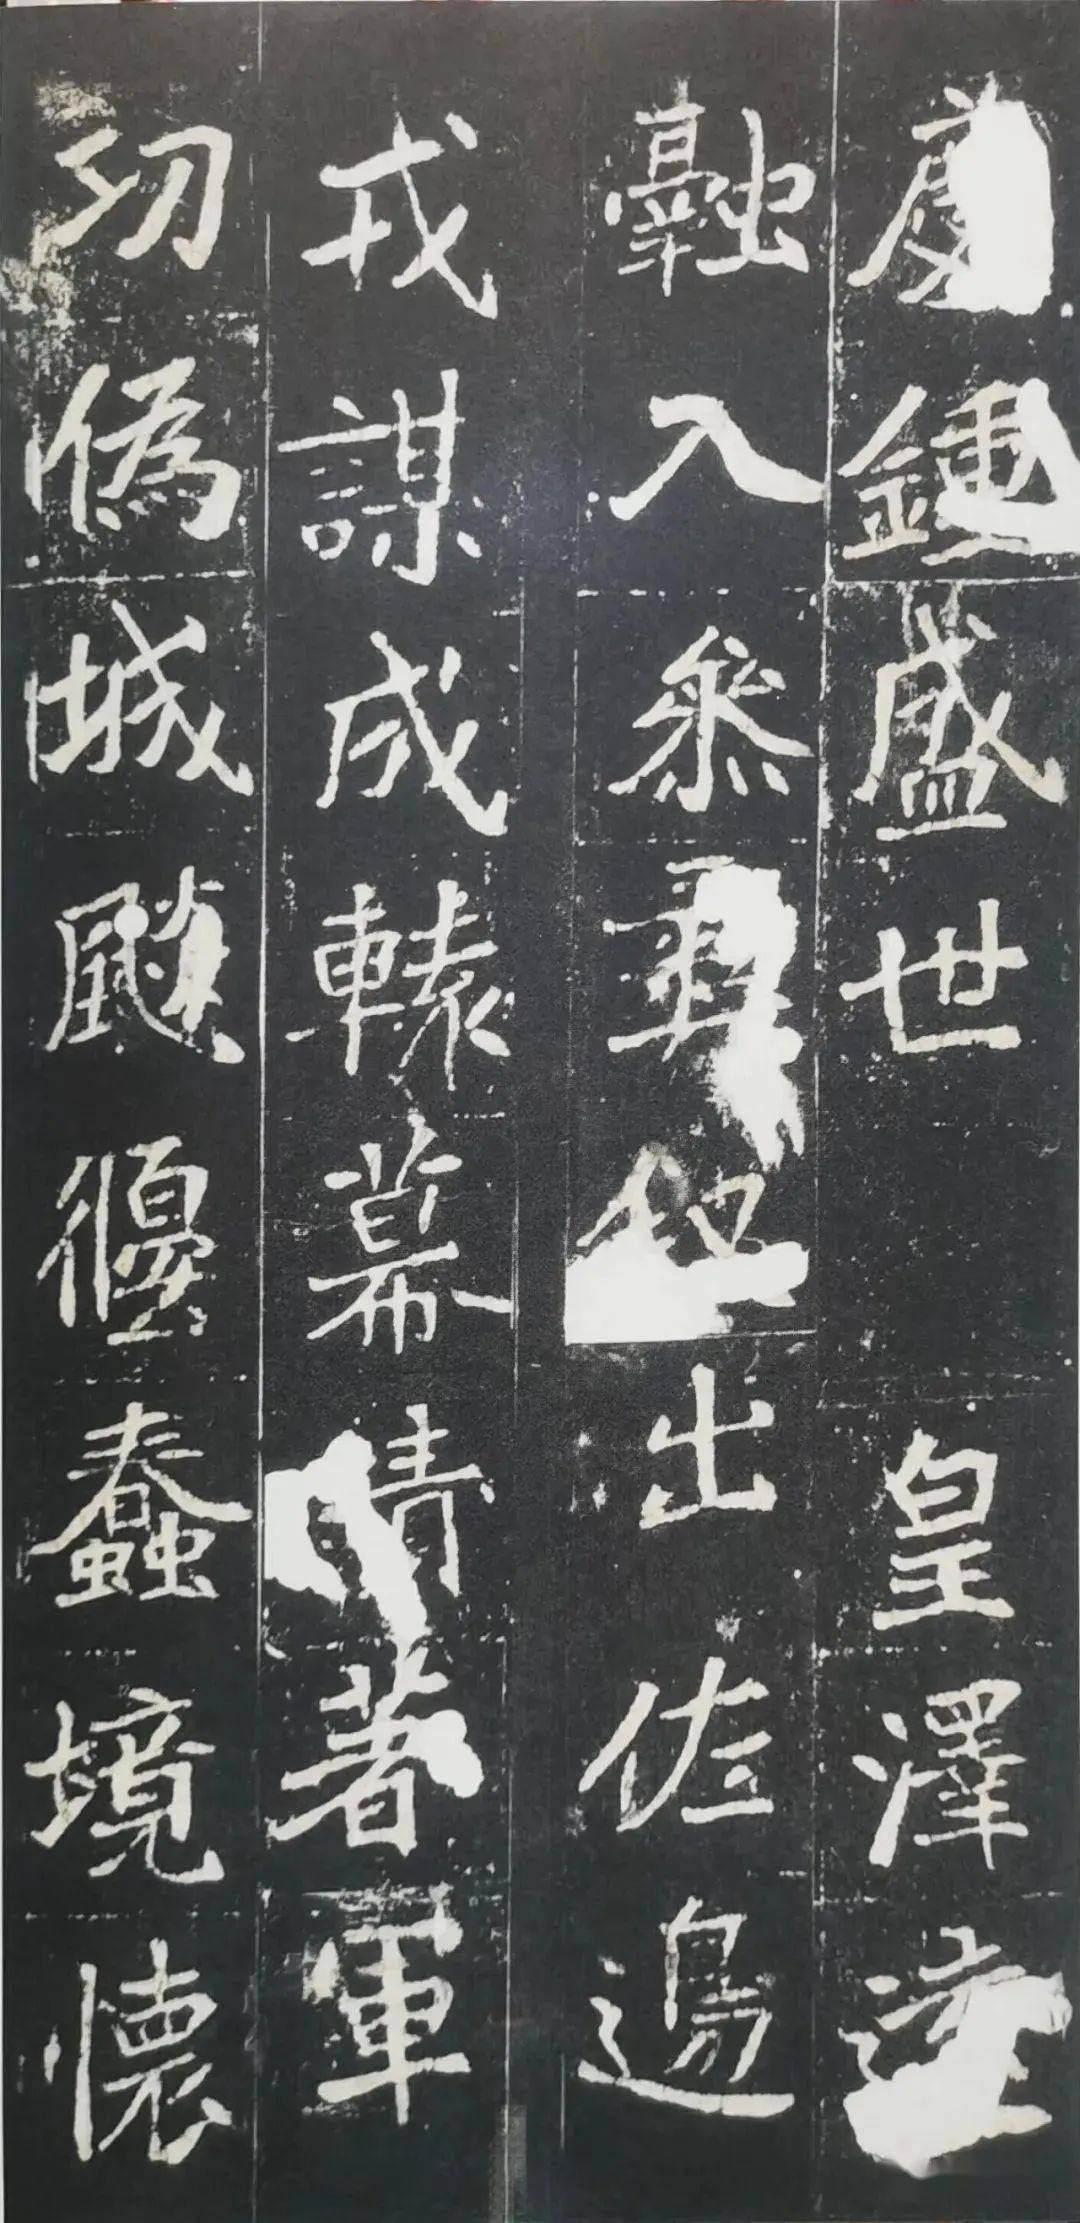 慶鍾盛世皇澤
融入參彝出佐邊
戎謀成轅幕著軍
功偽城飈偃蠢境懷